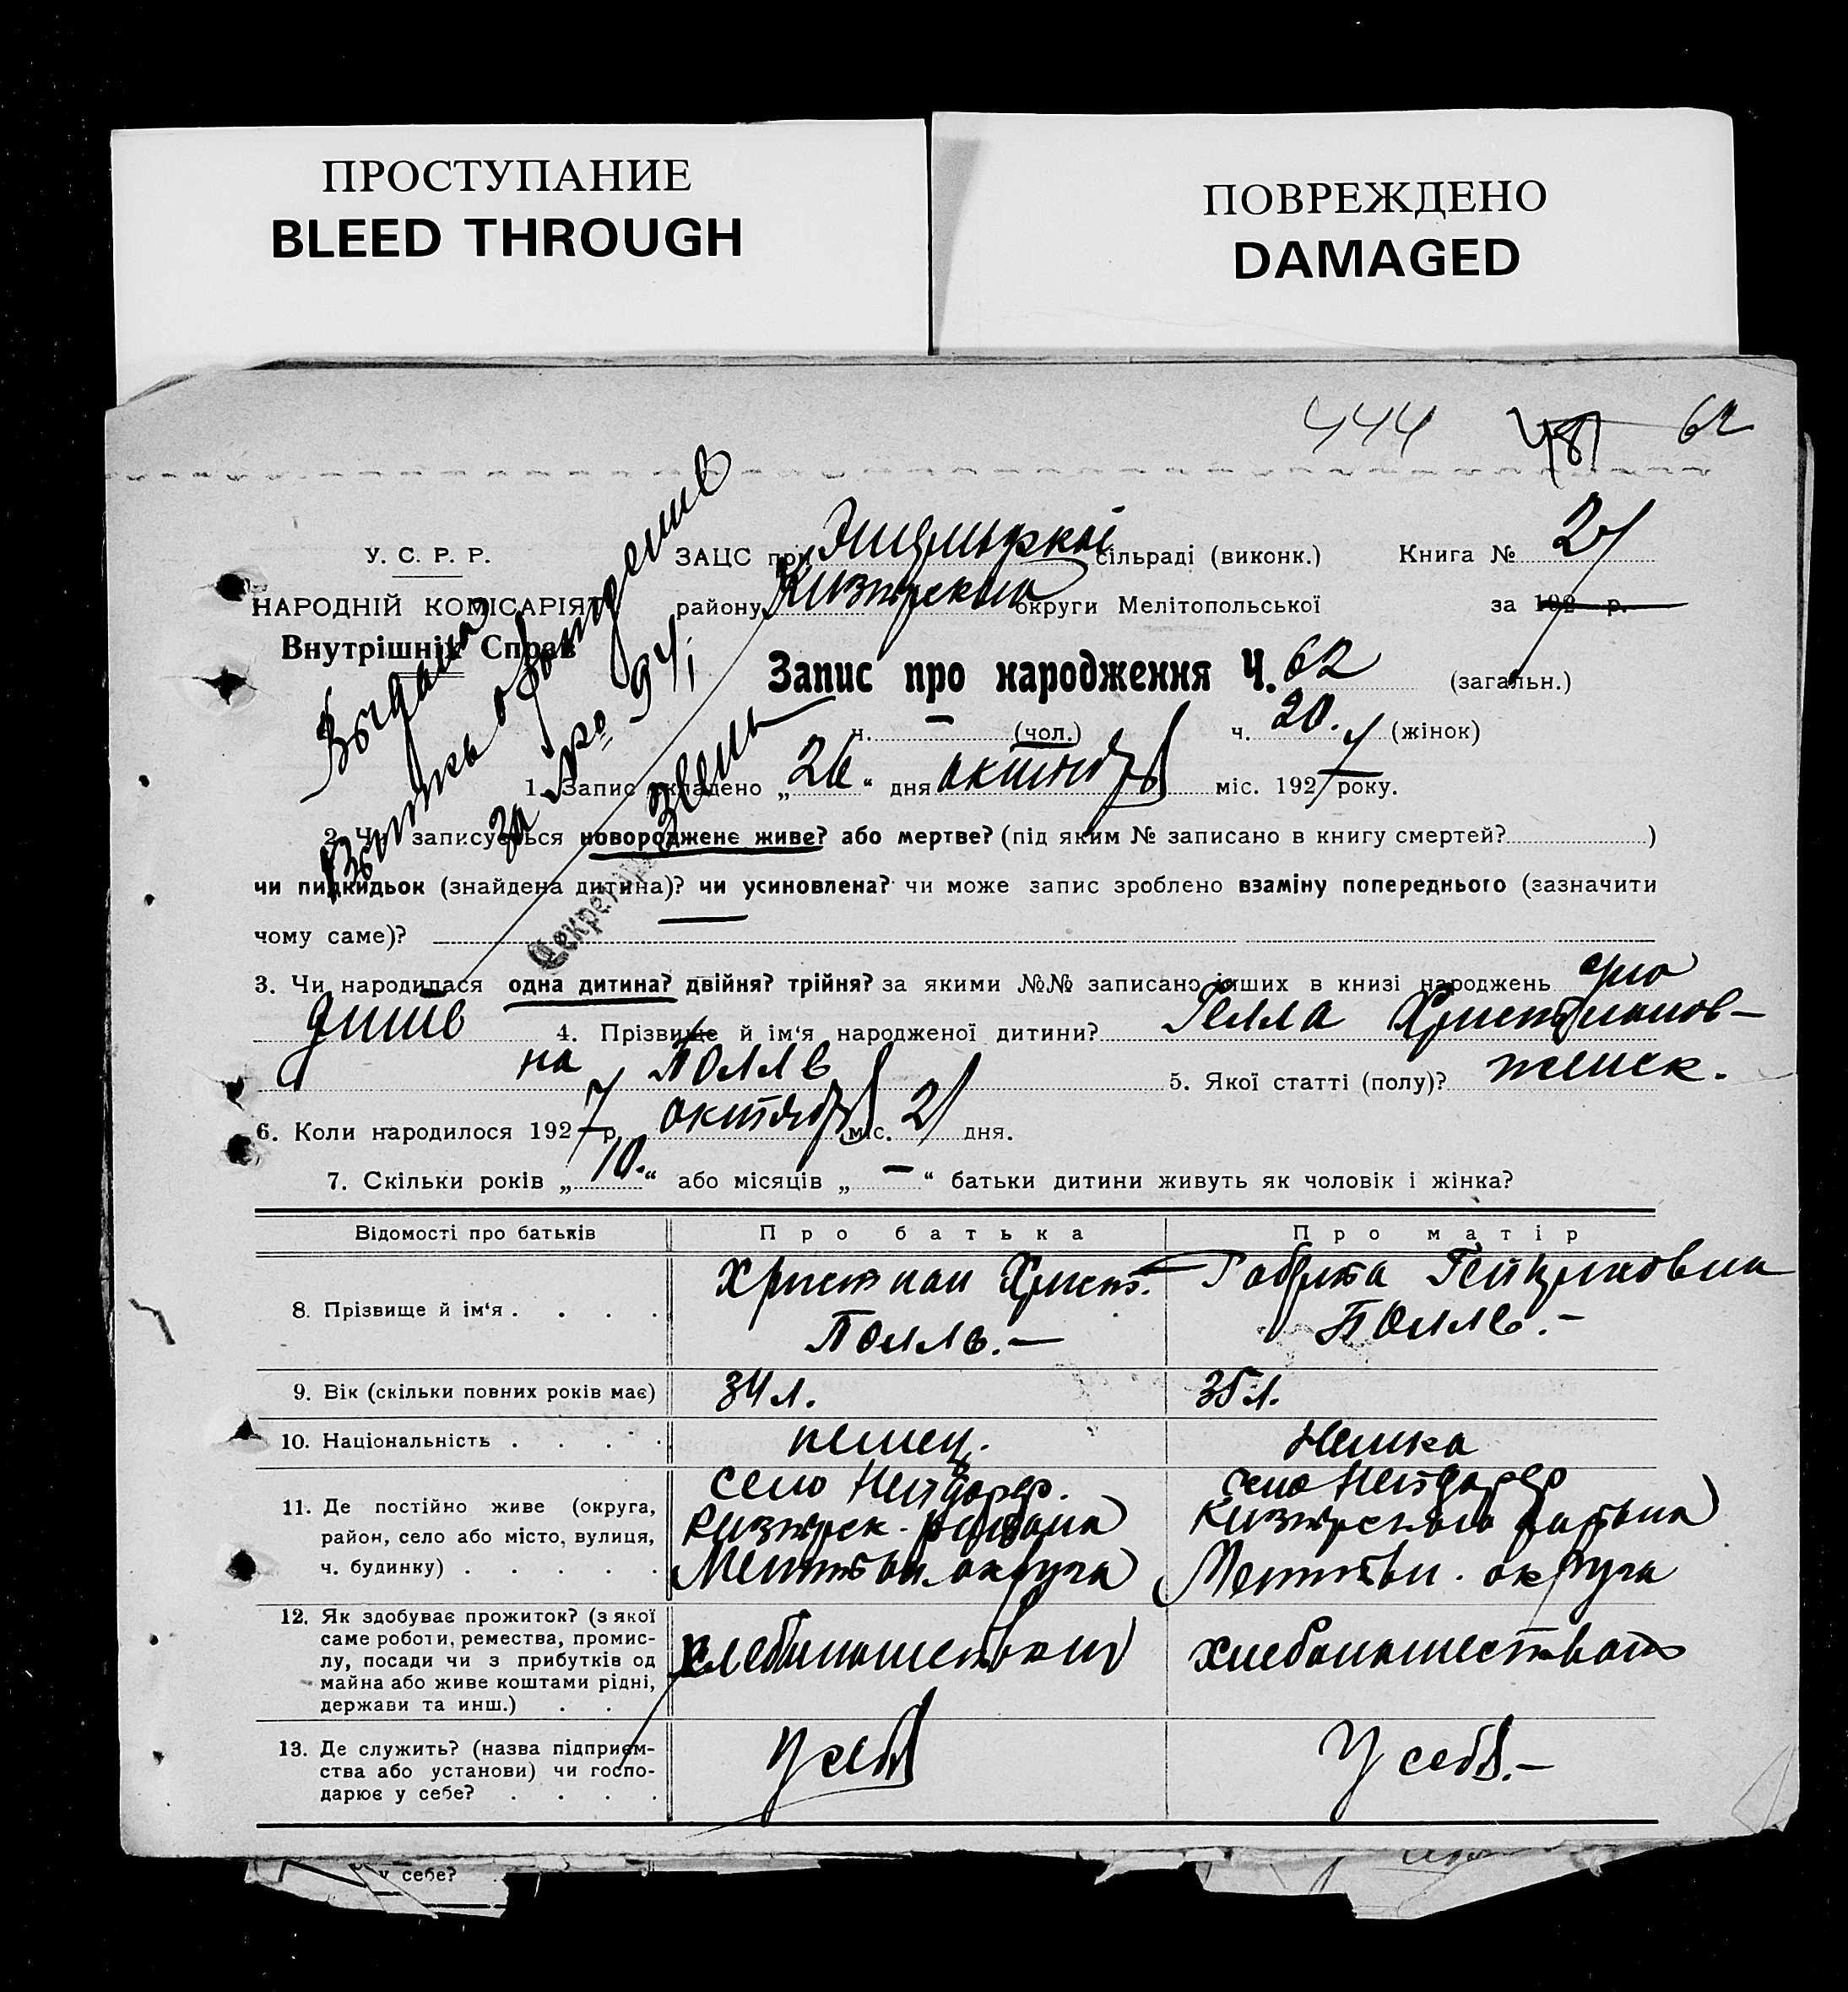 ПРОСТУПАНИЕ
BLEED THROUGH
ПОВРЕЖДЕНО
DAMAGED
444 481 62
У. С. Р. Р.
НАРОДНІЙ КОМІСАРІЯТ
Внутрішніх Справ
ЗАЦС при сільраді (виконк.) Книга № 2
району округи Мелітопольської за 192 р.
Запис про народження Ч. 62 (загальн.)
ч. — (чол.) ч. 20. (жінок)
1. Запис складено „26“ дня октября міс. 1927 року.
2. Чи записується новороджене живе? або мертве? (під яким № записано в книгу смертей? )
чи підкидьок (знайдена дитина)? чи усиновлена? чи може запис зроблено взаміну попереднього (зазначити
чому саме)?
3. Чи народилася одна дитина? двійня? трійня? за якими №№ записано інших в книзі народжень
4. Прізвище й ім‘я народженої дитини? Гелла Христианов-
на Полль 5. Якої статті (полу)? женск.
6. Коли народилося 1927 р. октября міс. 21 дня.
7. Скільки років „10.“ або місяців „—“ батьки дитини живуть як чоловік і жінка?
Відомості про батьків Про батька Про матір
8. Прізвище й ім‘я . . . . Христиан Христ. Полль.— Гейнриховна Полль.—
9. Вік (скільки повних років має) 34 л. 35 л.
10. Національність . . . . немец. Немка
11. Де постійно живе (округа, село Нейдорф. село Нейдорф
район, село або місто, вулиця, района района
ч. будинку) . . . . . округа округа
12. Як здобуває прожиток? (з якої
саме роботи, ремества, промис-
лу, посади чи з прибутків од хлебопашеством хлебопашеством
майна або живе коштами рідні,
держави та инш.) . .
13. Де служить? (назва підприєм-
ства або установи) чи госпо- у себя У себя.—
дарює у себе? . . . .
Выдана
за №
Секретар
у себе?